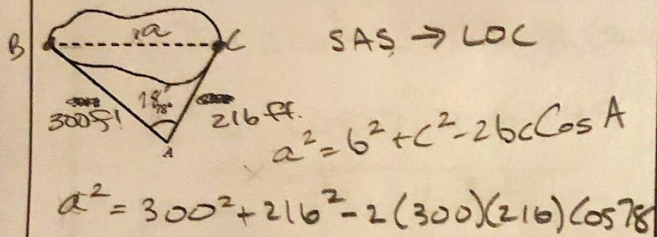 a
B C SAS → LOC
78°
300ft 216 ft.
A
a² = b² + c² - 2bc Cos A
a² = 300² + 216² - 2(300)(216) Cos 78